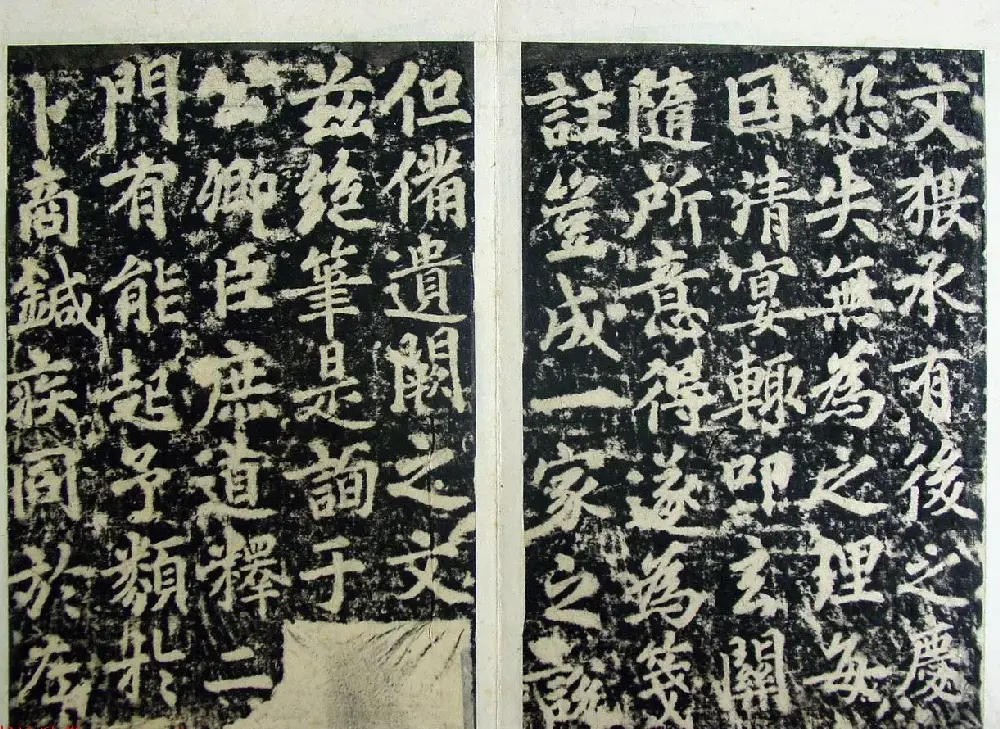 文猥承有後之慶
恐失無為之理每
因清宴輒叩玄關
隨所意得遂為箋
註豈成一家之說
但備遺闕之文
茲絕筆是詢于
公卿臣庶道釋二
門有能起予類於
卜商鍼疾同於左